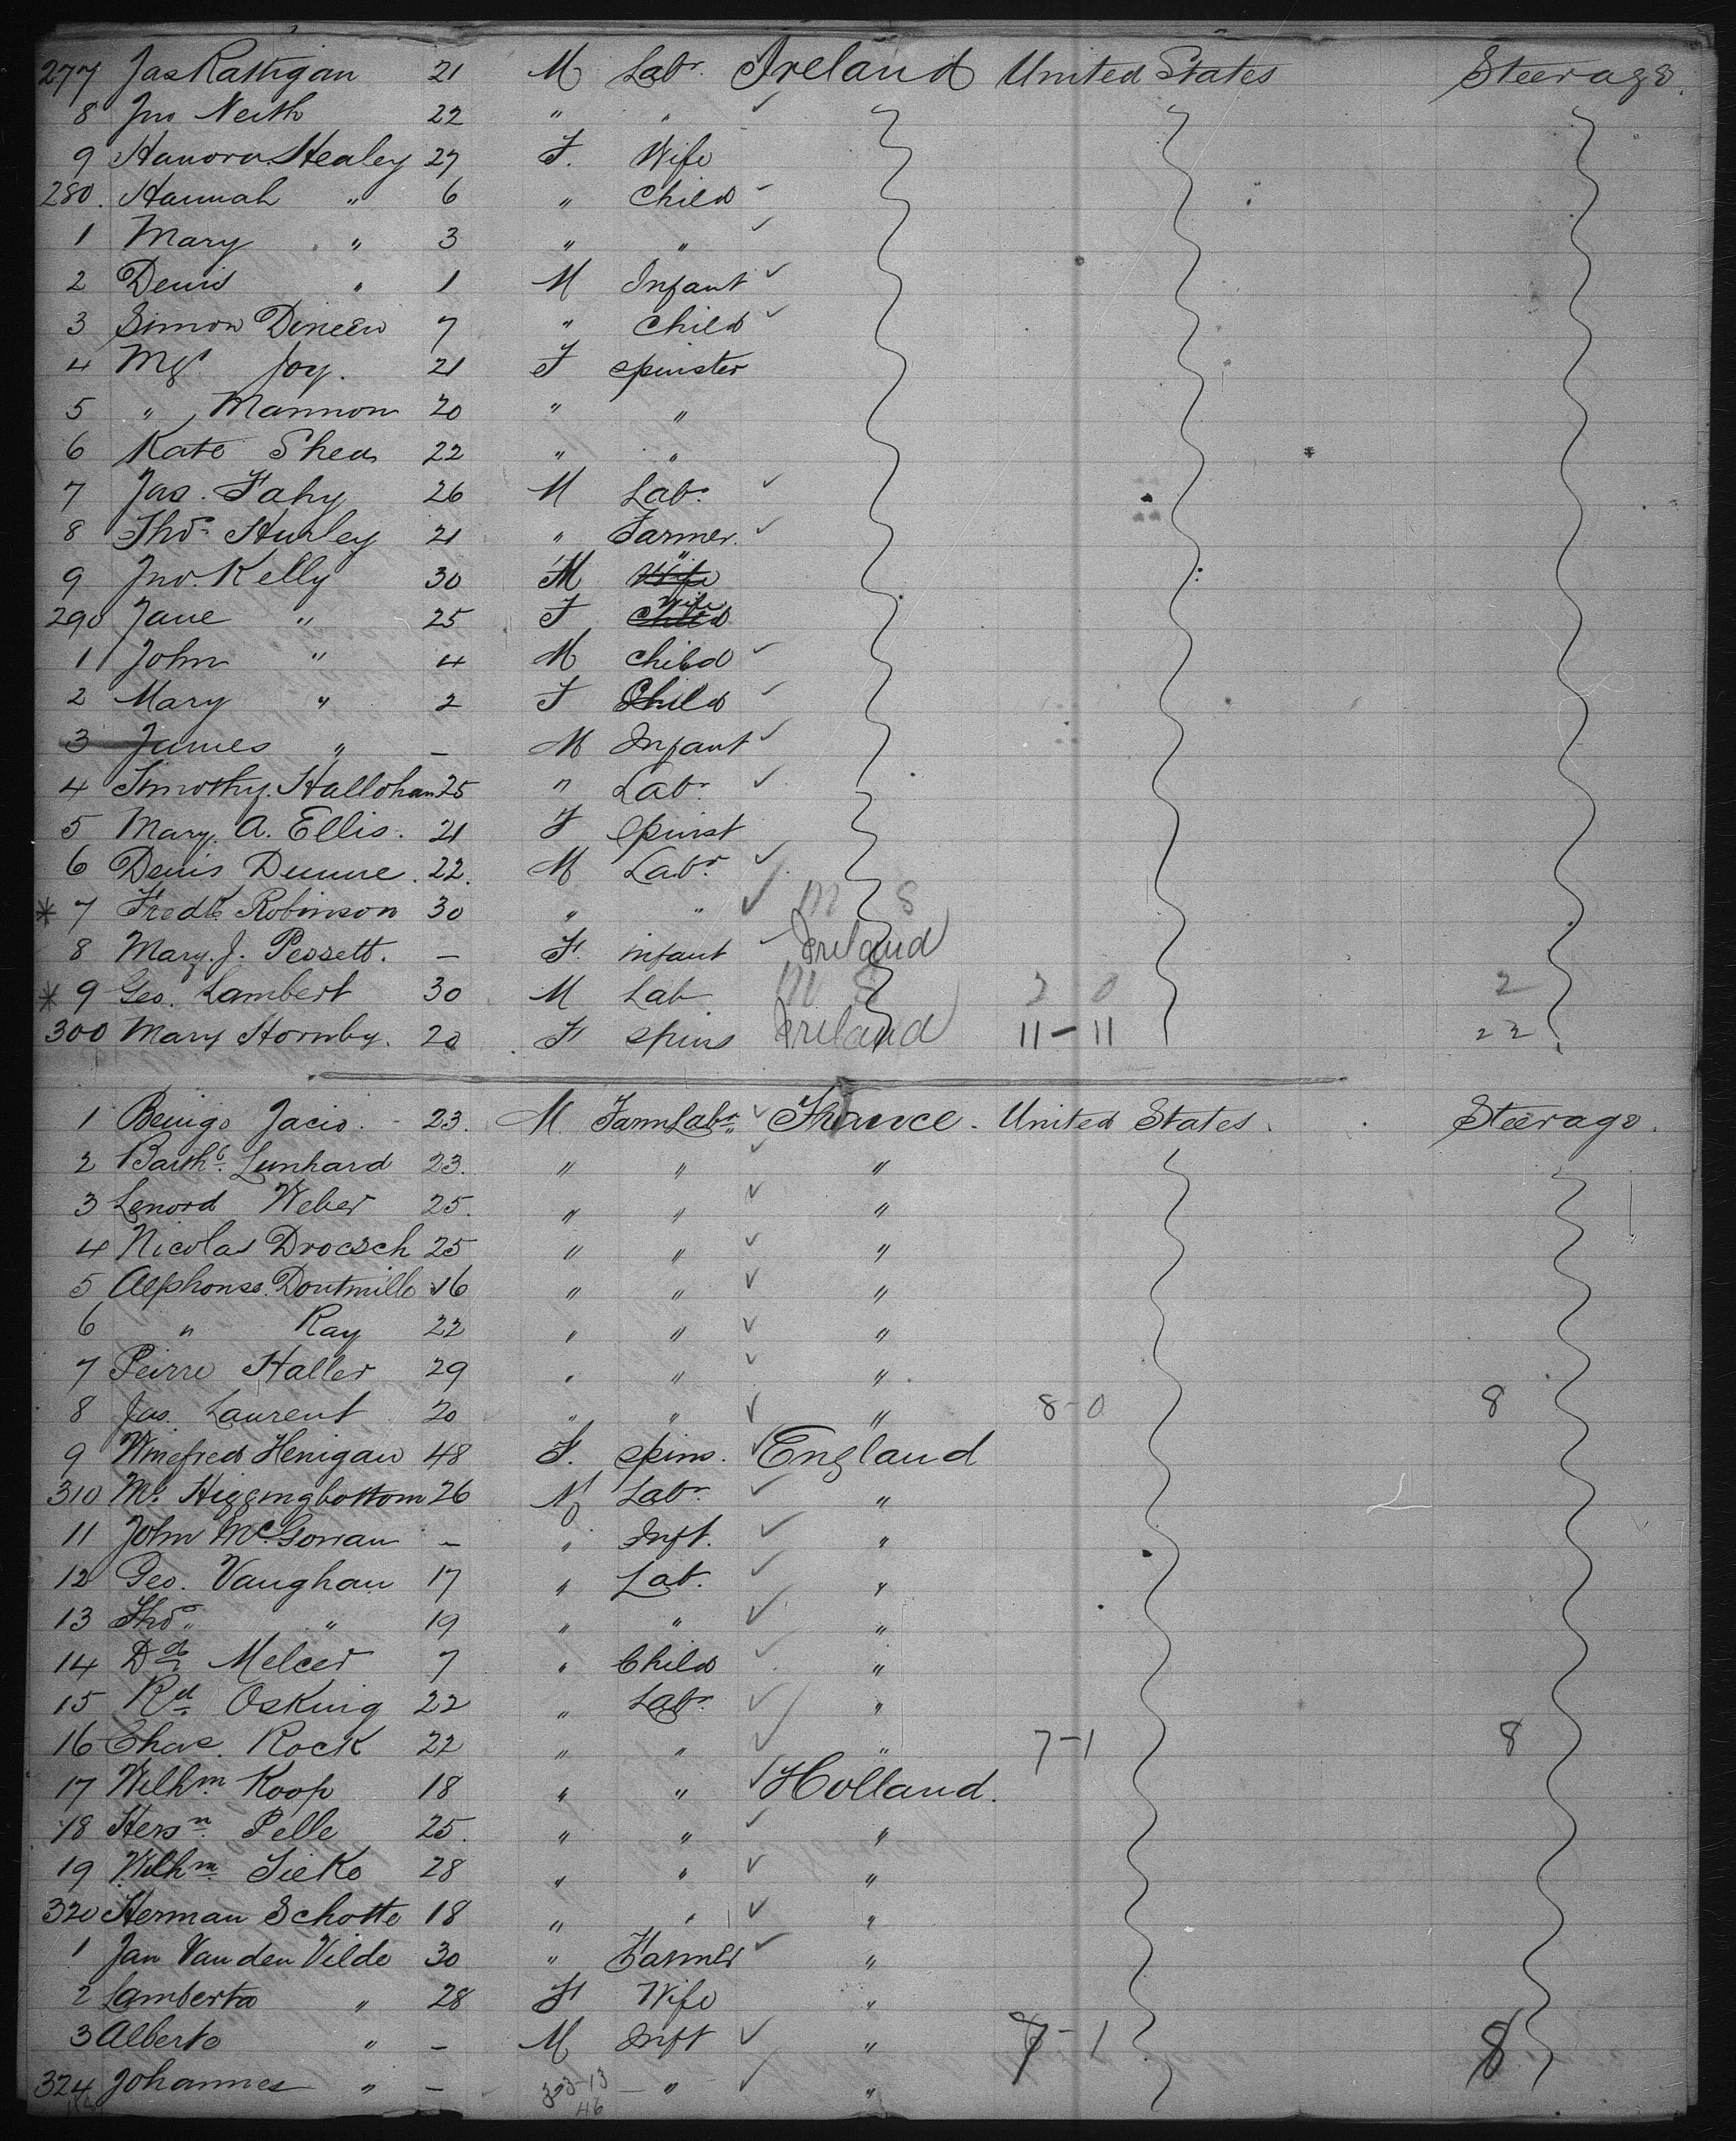 277 Jas Rattigan 21 M Labr. Ireland United States Steerage.
8 Jno Neith 22 " "
9 Hanora Healey 27 F. Wife
280. Hannah " 6 " Child
1 Mary " 3 " "
2 Denis " 1 M Infant
3 Simon Dineen 7 " Child
4 Mgt Joy. 21 F Spinster
5 " Mannon 20 " "
6 Kate Shea 22 " "
7 Jas. Fahy 26 M Labr.
8 Thos. Hurley 21 " Farmer.
9 Jno. Kelly 30 M Wife "
290 Jane " 25 F Child Wife
1 John " 4 M Child
2 Mary " 2 F Child
3 James " – M Infant
4 Timothy Hallohan 25 " Labr.
5 Mary A. Ellis. 21 F Spinst
6 Denis Dunne. 22. M Labr.
* 7 Fredk Robinson 30 " " M 8
8 Mary. J. Pessett. – F. infant Ireland
* 9 Geo. Lambert 30 M Lab M 8 2 0 2
300 Mary Hornby. 20 F Spins Ireland 11–11 22
1 Benigo Jacio. 23. M. Farm Labr. France. United States. Steerage.
2 Barth. Lunhard 23. " " "
3 Lenord Weber 25. " " "
4 Nicolas Drocsch 25 " " "
5 Alphonse. Doutmille 16 " " "
6 " Ray 22 " " "
7 Peirre Haller 29 " " "
8 Jas. Laurent 20 " " " 8-0 8
9 Winefred Henigan 48 F. Spins. England
310 Mc. Higgingbottom 26 M Labr. "
11 John McGowan – " Inft. "
12 Geo. Vaughan 17 " Lab. "
13 Thos. " 19 " " "
14 Dd Melcer 7 " Child "
15 Rd Osking 22 " Labr. "
16 Chas. Rock 22 " " " 7-1 8
17 Wilhm. Koop 18 " " Holland.
18 Hersn. Pelle 25. " " "
19 Wilhm. Sieke 28 " " "
320 Herman Schotte 18 " " "
1 Jan Van den Velde 30 " Farmer "
2 Lamberta " 28 F Wife "
3 Alberto " – M Inft " 7-1 8
324 Johannes " – 323-13 – " "
46